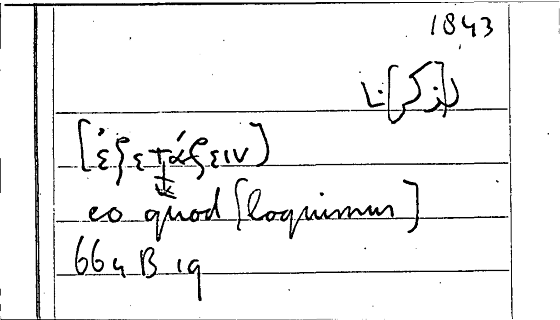 1843
[ἐξετάζειν]
eo quod [loquimur]
66a B 19